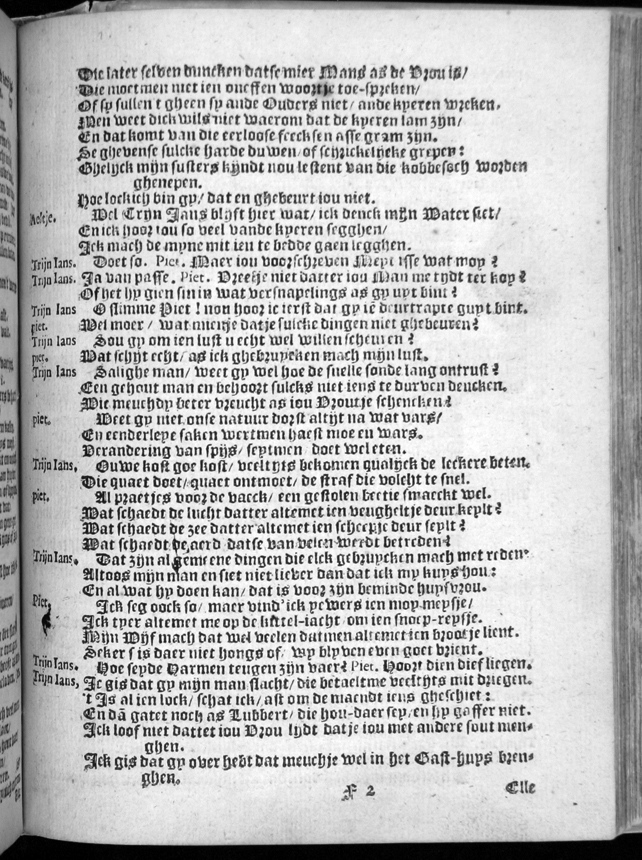 Die later selven duncken datse mier Mans as de Vrou is/
Die moetmen met ien oneffen woortje toe-spreken/
Of sy sullen t gheen sy ande Ouders niet/ ande kyeren wreken.
Men weet dickwils niet waerom dat de kyeren lam zyn/
En dat komt van die eerloose feecksen asse gram zyn.
Se ghevense sulcke harde duwen/ of schrickelijcke grepen:
Ghelijck mijn susters kijndt nou lestent van die kobbesach worden
ghenepen.
Hoe lockich bin gy/ dat en ghebeurt iou niet.
Aeltje. Wel Tryn Jans blijft hier wat/ ick denck mijn Water siet/
En ick hoor iou so veel vande kyeren segghen/
Ick mach de myne mit ien te bedde gaen legghen.
Trijn Ians. Doet so. Piet. Maer iou voorschreven Meyt isse wat moy?
Trijn Ians. Ja van passe. Piet. Vreesje niet datter iou Man me tydt ter koy?
Of het hy gien sin in wat versnapelings as gy uyt bint?
Trijn Ians O slimme Piet! nou hoor ic ierst dat gy ië deurtrapte guyt bint.
piet. Wel moer/ wat mienje datje sulcke dingen niet ghebeuren?
Trijn Ians Sou gy om ien lust u echt wel willen scheuren?
piet. Wat schijt echt/ as ick ghebruycken mach mijn lust.
Trijn Ians Salighe man/ weet gy wel hoe de snelle sonde lang ontrust?
Een gehout man en behoort sulcks niet iens te durven dencken.
Wie meuchdy beter vreucht as iou Vroutje schencken?
piet. Weet gy met onse natuur dorst altijt na wat vars/
En eenderleye saken wertmen haest moe en wars.
Verandering van spijs/ seytmen doet wel eten.
Trijn Ians. Ouwe kost goe kost/ veeltyts bekomen qualijck de leckere beten.
Die quaet doet/ quaet ontmoet/ de straf die volcht te snel.
piet. Al praetjes voor de vaeck/ een gestolen beetie smaeckt wel.
Wat schaedt de lucht datter altemet ien veugheltje deur keylt?
Wat schaedt de zee datter altemet ien scheepje deur seylt?
Wat schaedt de aerd datse van velen werdt betreden?
Trijn Ians. Dat zijn algemeene dingen die elck gebruycken mach met reden.
Altoos mijn man en siet niet liever dan dat ick my kuys hou:
En al wat hy doen kan/ dat is voor zijn beminde huysvrou.
Piet. Ick seg oock so/ maer vind' ick yewers ien moy meysje/
Ick tyer altemet me op de kittel-iacht/ om ien snoep-reysje.
Mijn Wijf mach dat wel veelen datmen altemet ien brootje lient.
Sekers is daer niet hongs of/ wy blyven even goet vrient.
Trijn Ians. Hoe seyde Harmen teugen zijn vaer? Piet. Hoort dien dief liegen.
Trijn Ians, Ic gis dat gy mijn man slacht/ die betaeltme veeltyts mit driegen.
't Is al ien lock/ schat ick/ ast om de maendt iens gheschiet:
En dā gatet noch as Lubbert/ die hou-daer sey/ en hy gaffer niet.
Ick loof niet dattet iou Vrou lydt datje iou met andere sout men-
ghen.
Ick gis dat gy over hebt dat meuchje wel in het Gast-huys bren-
ghen.
F 2 Elle